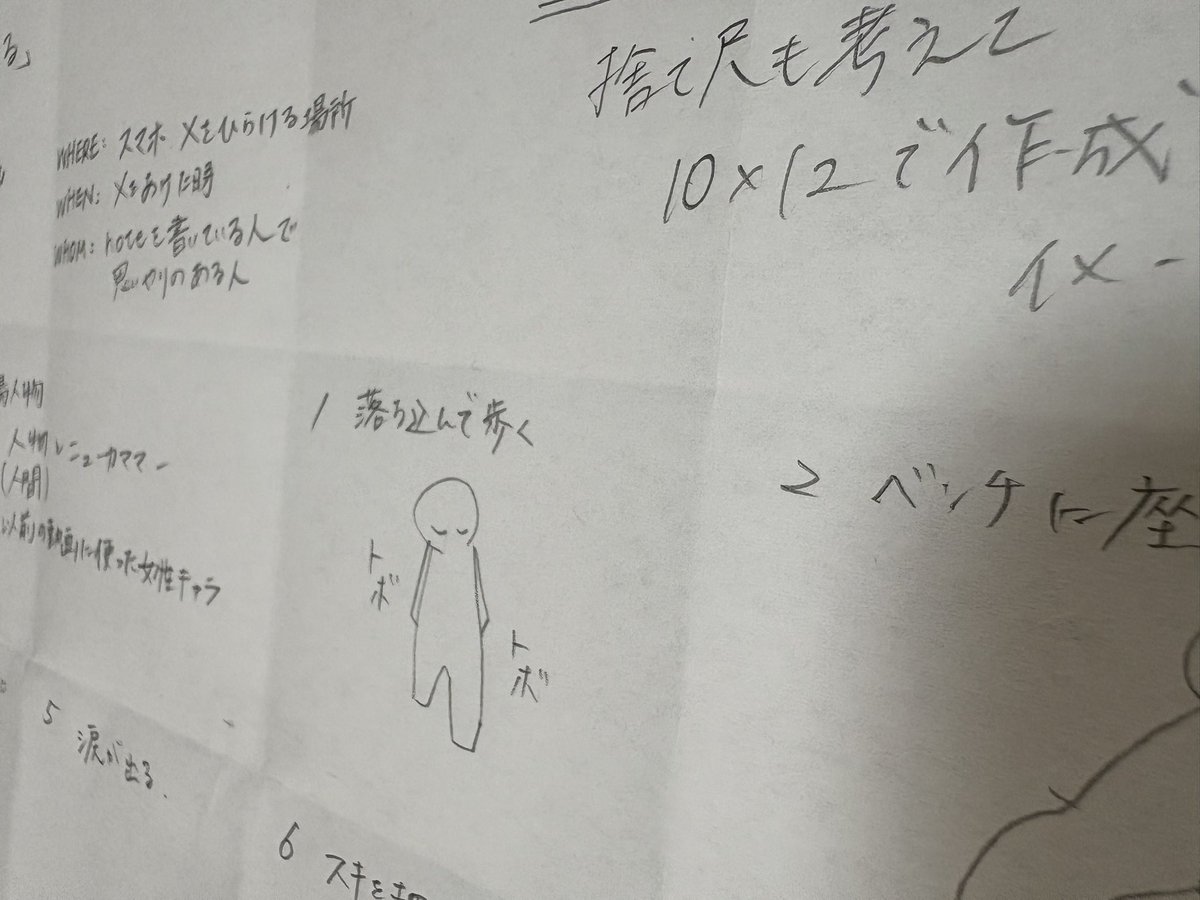 る」
WHERE: スマホ Xをひらける場所
WHEN: Xをあけた時
WHOM: noteを書いている人で
思いやりのある人
捨て尺も考えて
10×12で作成
イメー
人物
人物
(人間)
以前の動画に使った女性キャラ
1 落ち込んで歩く
トボ
トボ
2 ベンチに座
5 涙が出る.
6 スキを